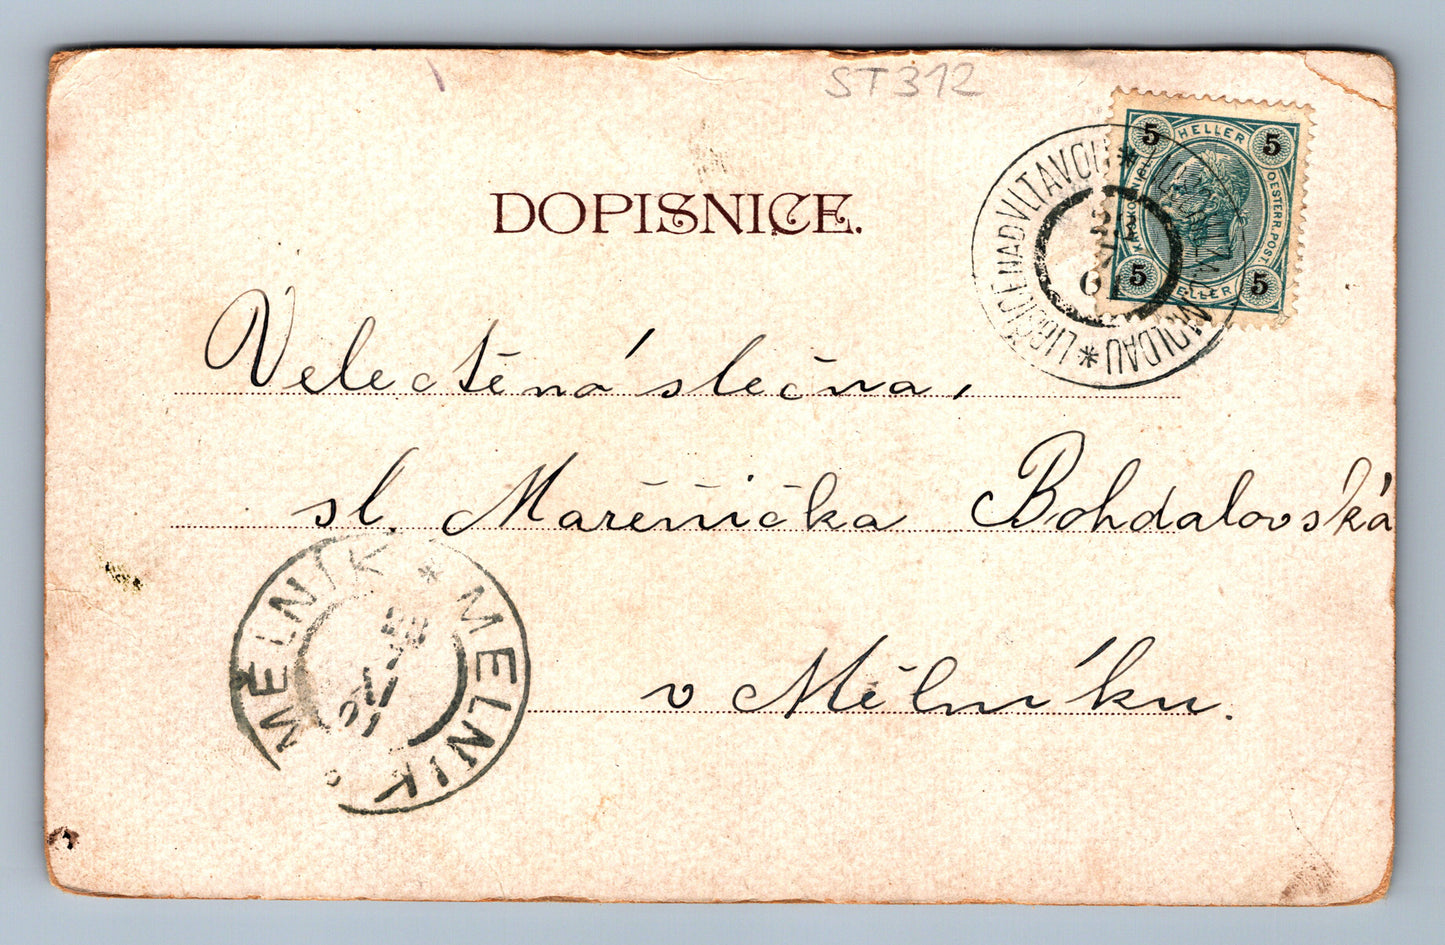 ST312
DOPISNICE.
5 HELLER 5
OESTERR. POST.
5 HELLER 5
NAD VLTAVOU * MOLDAU *
Velectěná slečna,
sl. Mařěnička Bohdalovská
v Mělníku.
MĚLNÍK * MELNIK